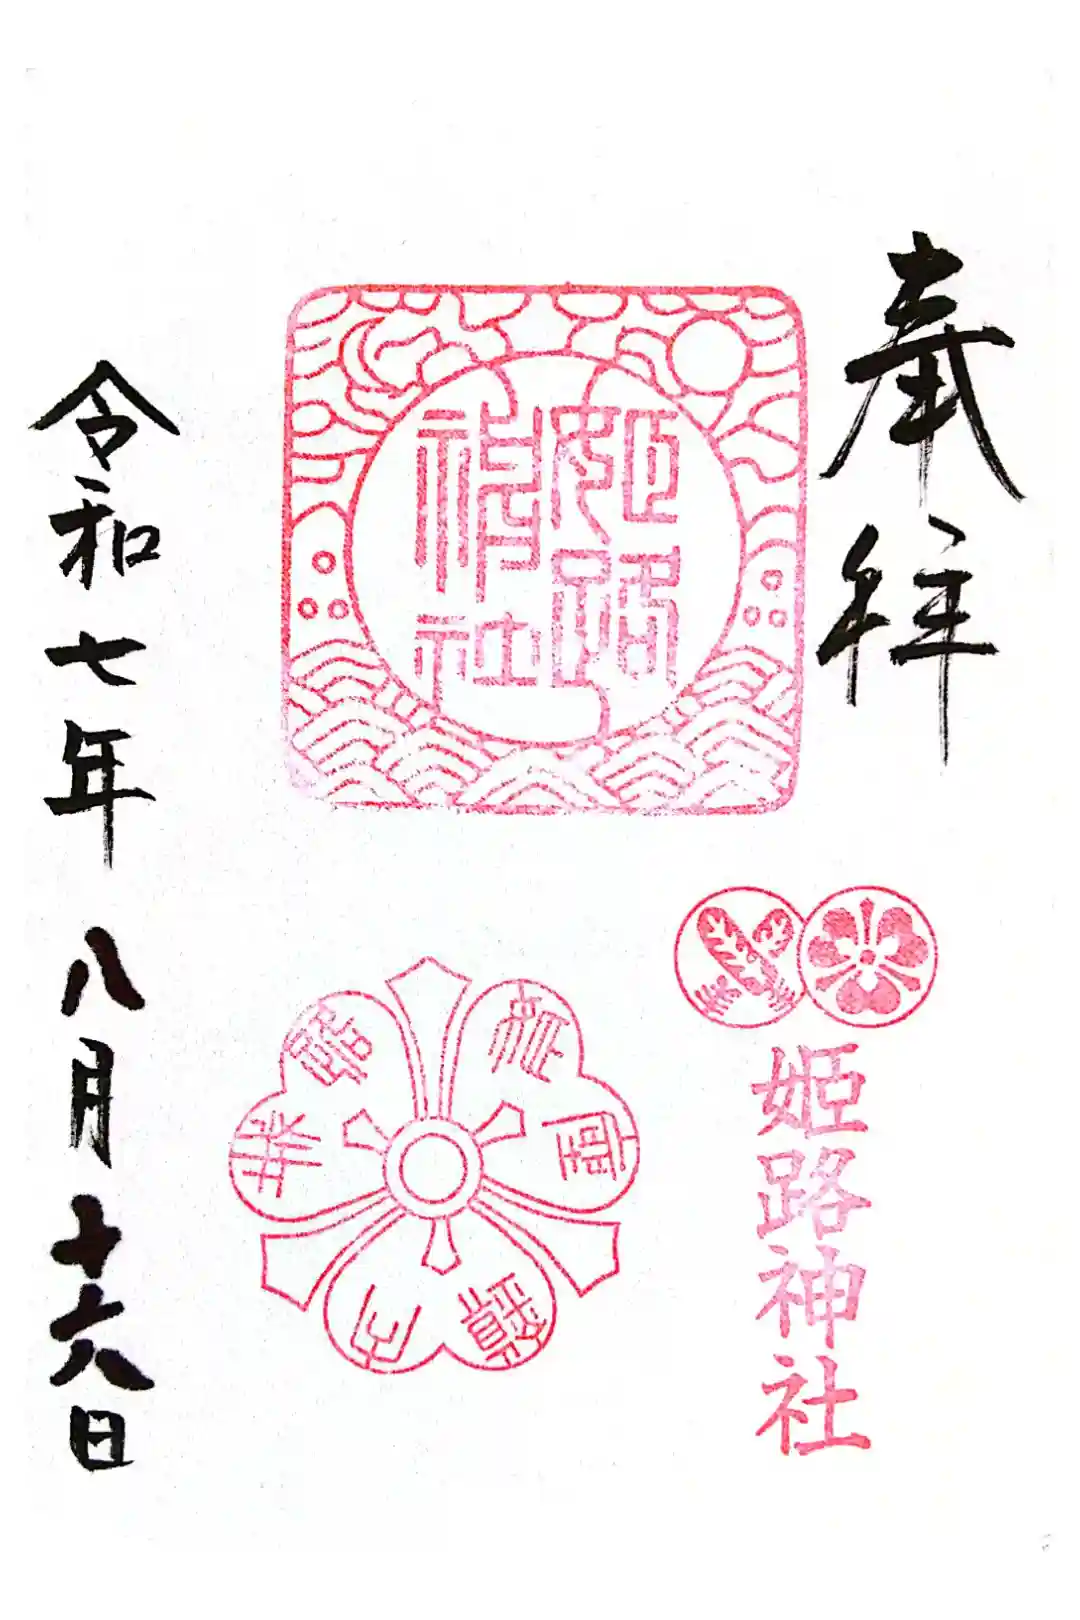 奉拝
姫路
神社
姫路神社
令和七年八月十六日